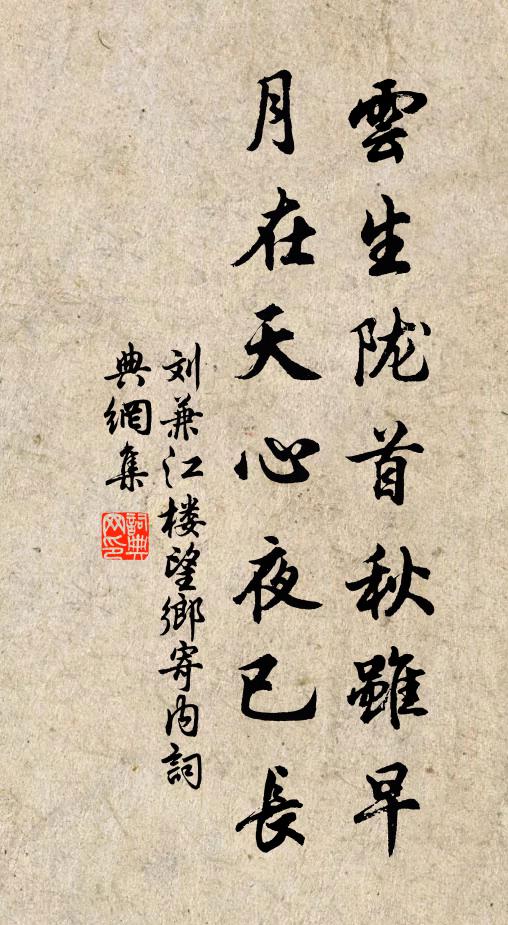 雲生陇首秋雖早
月在天心夜已長
刘兼江楼望鄉寄内詞
典網集
詞典网印